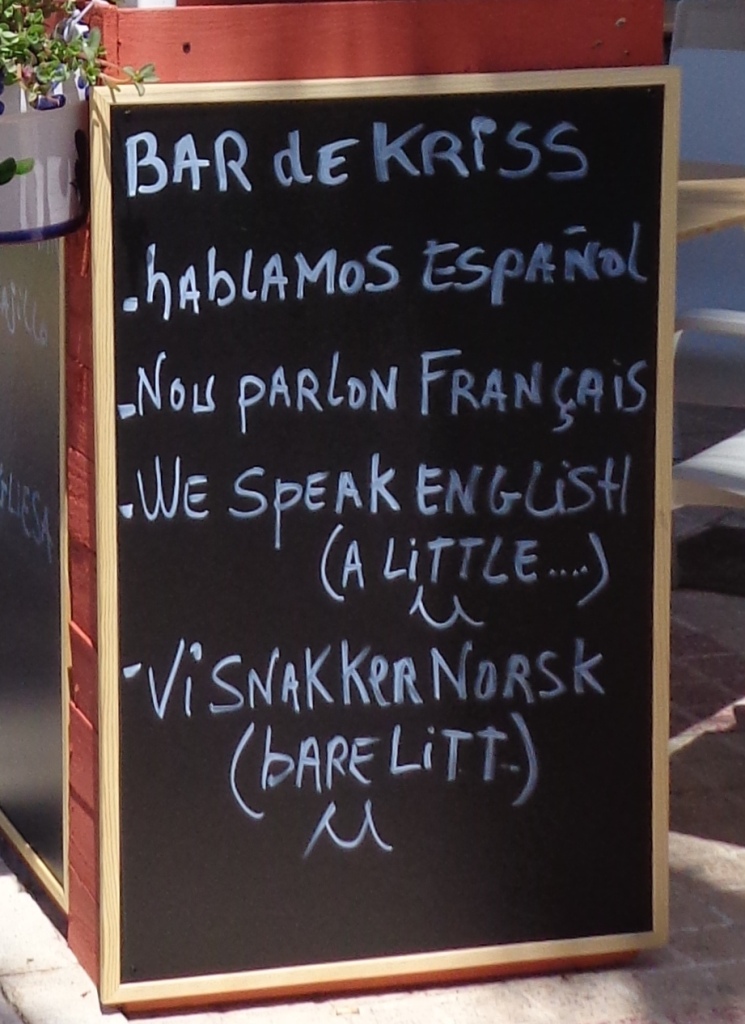 BAR dE KRiSS
.hAblAMOS ESPAÑOl
-NOU PARlON FRANÇAiS
.WE SPEAK ENGLiSH
(A LiTTLE....)
-Vi SNAKKER NORSK
(bARE LiTT..)